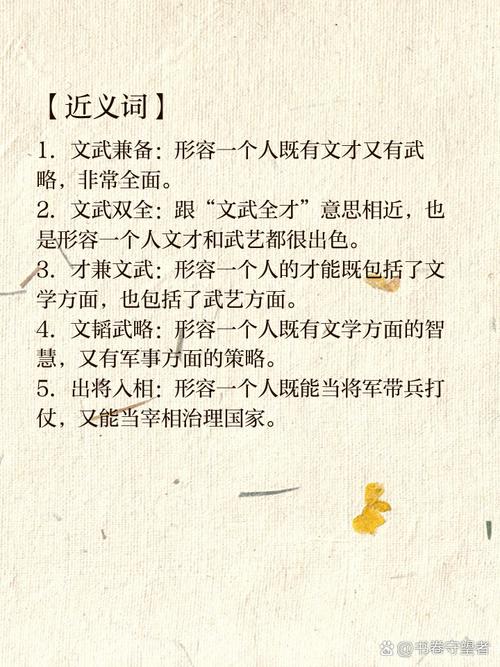 【近义词】
1. 文武兼备：形容一个人既有文才又有武
略，非常全面。
2. 文武双全：跟“文武全才”意思相近，也
是形容一个人文才和武艺都很出色。
3. 才兼文武：形容一个人的才能既包括了文
学方面，也包括了武艺方面。
4. 文韬武略：形容一个人既有文学方面的智
慧，又有军事方面的策略。
5. 出将入相：形容一个人既能当将军带兵打
仗，又能当宰相治理国家。
@书卷守望者